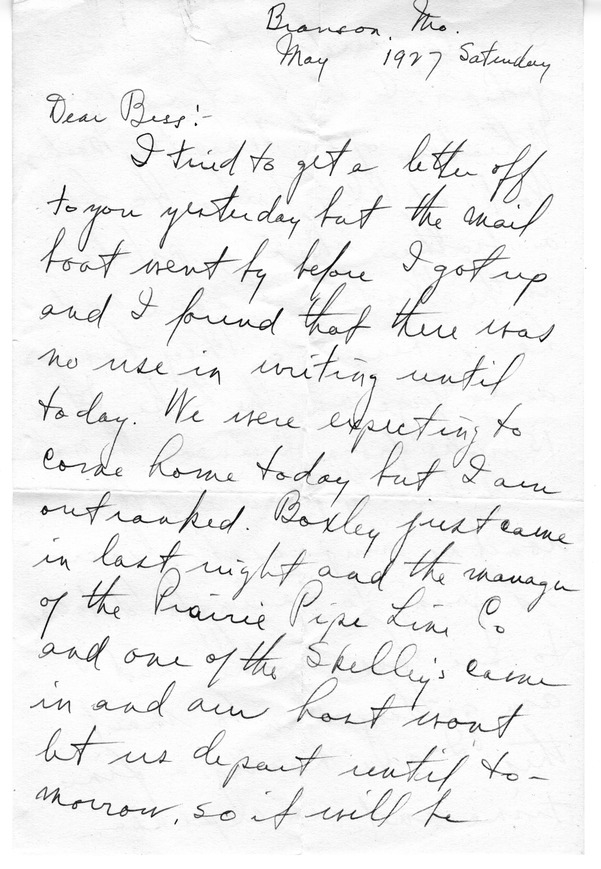 Branson, Mo.
May 1927 Saturday
Dear Bess:-
I tried to get a letter off
to you yesterday but the mail
boat went by before I got up
and I found that there was
no use in writing until
today. We were expecting to
come home today but I am
outranked. Boxley just came
in last night and the manager
of the Prairie Pipe Line Co
and one of the Skelley's came
in and our host wont
let us depart until to-
morrow, so it will be